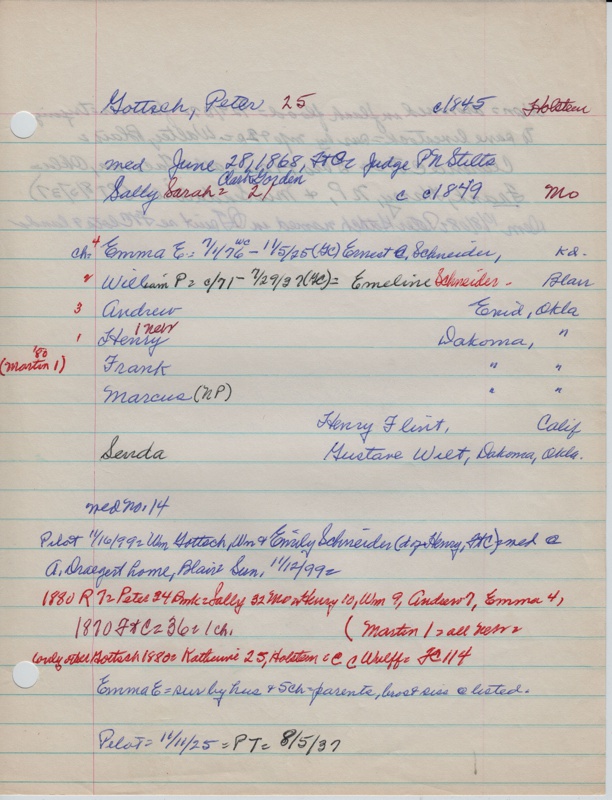 Gottsch, Peter 25 c1845 Holstein
med June 28, 1868, FtC = Judge P N Stilts
Clark Gorden
Sally Sarah = 21 c c1849 Mo
ch. 4 Emma E = 7/1/76 WC - 11/5/25 (FtC) Ernest C, Schneider, Kd.
2 William P = c/71 - 7/29/37 (FtC) = Emeline Schneider - Blair
3 Andrew Enid, Okla
1 Henry 1 new Dakoma, "
'80 (Martin 1) Frank " "
Marcus (NP) " "
Henry Flint, Calif
Senda Gustave Wilt, Dakoma, Okla.
med No. 14
Pilot 11/16/99 = Wm Gottsch, Wm & Emily Schneider (d of Henry, FtC) = med @
A, Draegert home, Blair Sun, 11/12/99 =
1880 R 7 = Peter 34 Dmk = Sally 32 Mo = Henry 10, Wm 9, Andrew 7, Emma 4,
1870 FtC = 36 = 1 ch. ( Martin 1 = all new =
only other Gottsch 1880 = Katherine 25, Holstein = @ C Wulff = FC 114
Emma E = sur by hus & 5 ch = parents, bros & siss @ listed.
Pilot = 11/11/25 = PT = 8/5/37